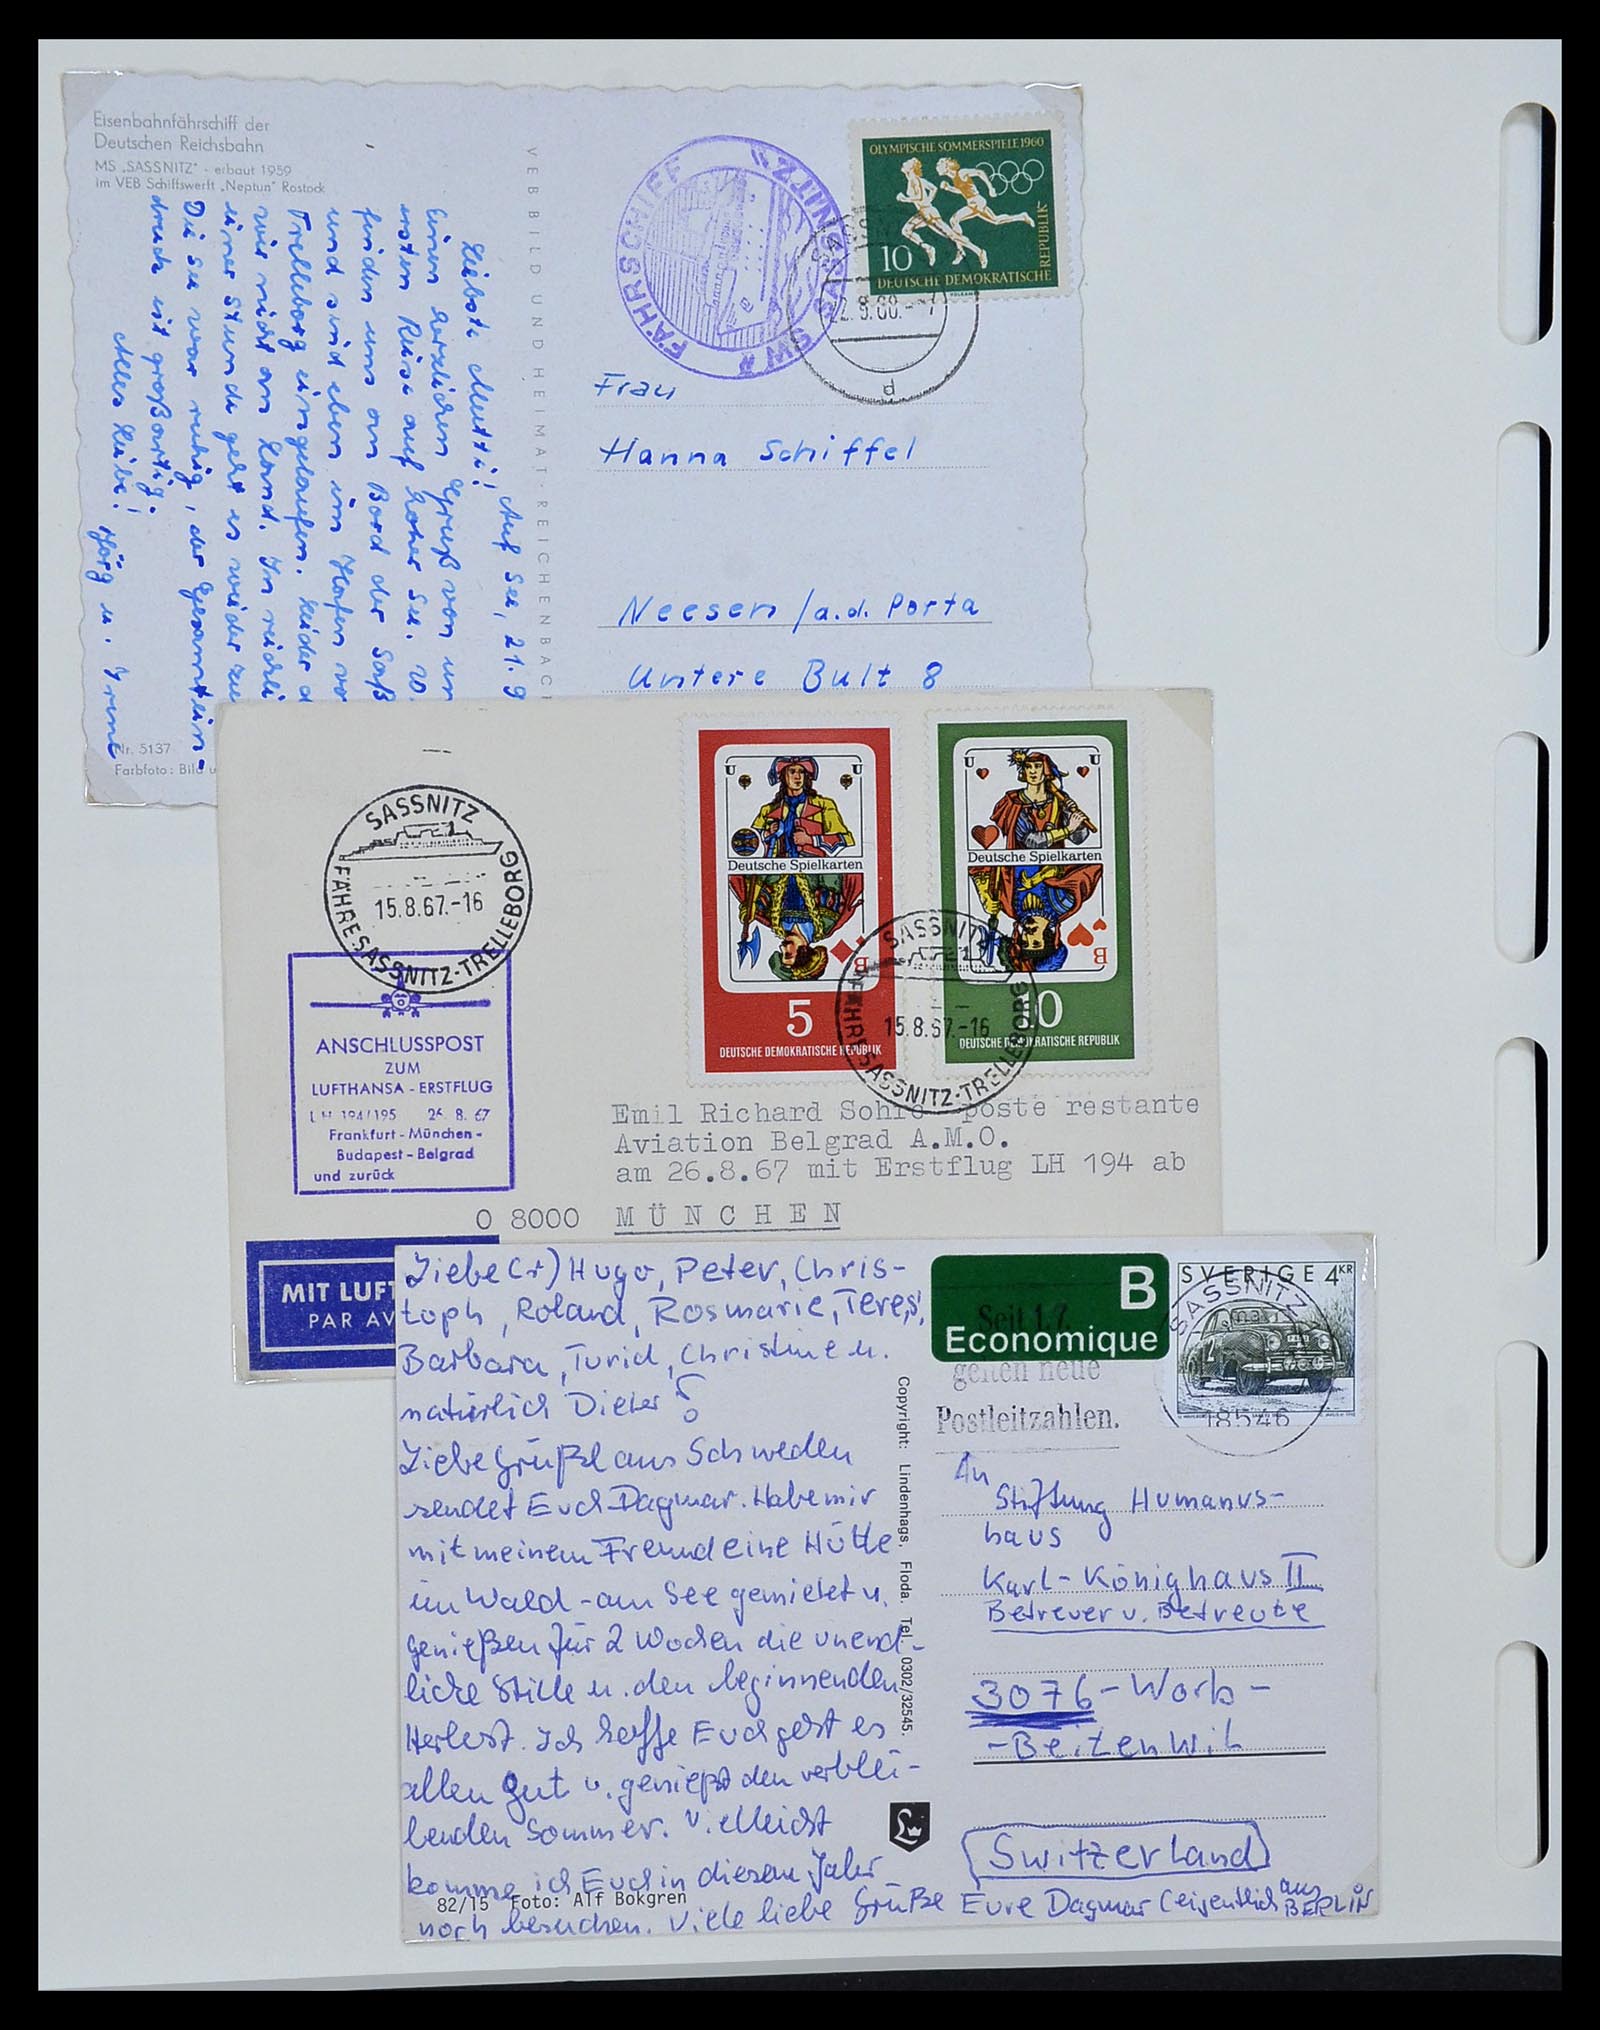 Eisenbahnfährschiff der
Deutschen Reichsbahn
MS „SASSNITZ" - erbaut 1959
im VEB Schiffswerft „Neptun" Rostock
VEB BILD UND HEIMAT · REICHENBACH
Auf See, 21.9
Liebste Mutti!
Einen herzlichen Gruß von un
ersten Reise auf hoher See. W
finden uns an Bord der Saß
und sind eben im Hafen vo
Trelleborg eingelaufen. Leider d
wir nicht an Land. In reichli
einer Stunde geht es wieder zu
Die See war ruhig, der Gesamtein-
druck ist großartig.
Alles Liebe! Jörg u. Irene
Nr. 5137
Farbfoto: Bild u
MS FÄHRSCHIFF „SASSNITZ"
OLYMPISCHE SOMMERSPIELE 1960
10
DEUTSCHE DEMOKRATISCHE
REPUBLIK
SASSN
22.9.60.-7
d
Frau
Hanna Schiffel
Neesen / a.d. Porta
Untere Bult 8
SASSNITZ
15.8.67.-16
FÄHRE SASSNITZ-TRELLEBORG
U U
Deutsche Spielkarten
B
5
DEUTSCHE DEMOKRATISCHE REPUBLIK
U U
Deutsche Spielkarten
B
10
DEUTSCHE DEMOKRATISCHE REPUBLIK
SASSNITZ
15.8.67.-16
FÄHRE SASSNITZ-TRELLEBORG
ANSCHLUSSPOST
ZUM
LUFTHANSA - ERSTFLUG
LH 194/195 26. 8. 67
Frankfurt - München -
Budapest - Belgrad
und zurück
Emil Richard Sohre poste restante
Aviation Belgrad A.M.O.
am 26.8.67 mit Erstflug LH 194 ab
O 8000 MÜNCHEN
MIT LUF
PAR AV
Liebe(r) Hugo, Peter, Chris-
toph, Roland, Rosmarie, Teres,
Barbara, Turid, Christine u.
natürlich Dieter!
Liebe Grüße aus Schweden
sendet Euch Dagmar. Habe mir
mit meinem Freund eine Hütte
im Wald - am See gemietet u.
genießen für 2 Wochen die unend-
liche Stille u. den beginnenden
Herbst. Ich hoffe Euch geht es
allen gut u. genießt den verblei-
benden Sommer. Vielleicht
komme ich Euch in diesem Jahr
noch besuchen. Viele liebe Grüße Eure Dagmar (eigentlich aus BERLIN
82/15 Foto: Alf Bokgren
Copyright: Lindenhags, Floda. Tel. 0302/32545.
B
Economique
Seit 1.7.
gelten neue
Postleitzahlen.
SVERIGE 4KR
SASSNITZ
18546
An
Stiftung Humanus-
haus
Karl-Könighaus II
Betreuer u. Betreute
3076 - Worb -
- Beitenwil
Switzerland